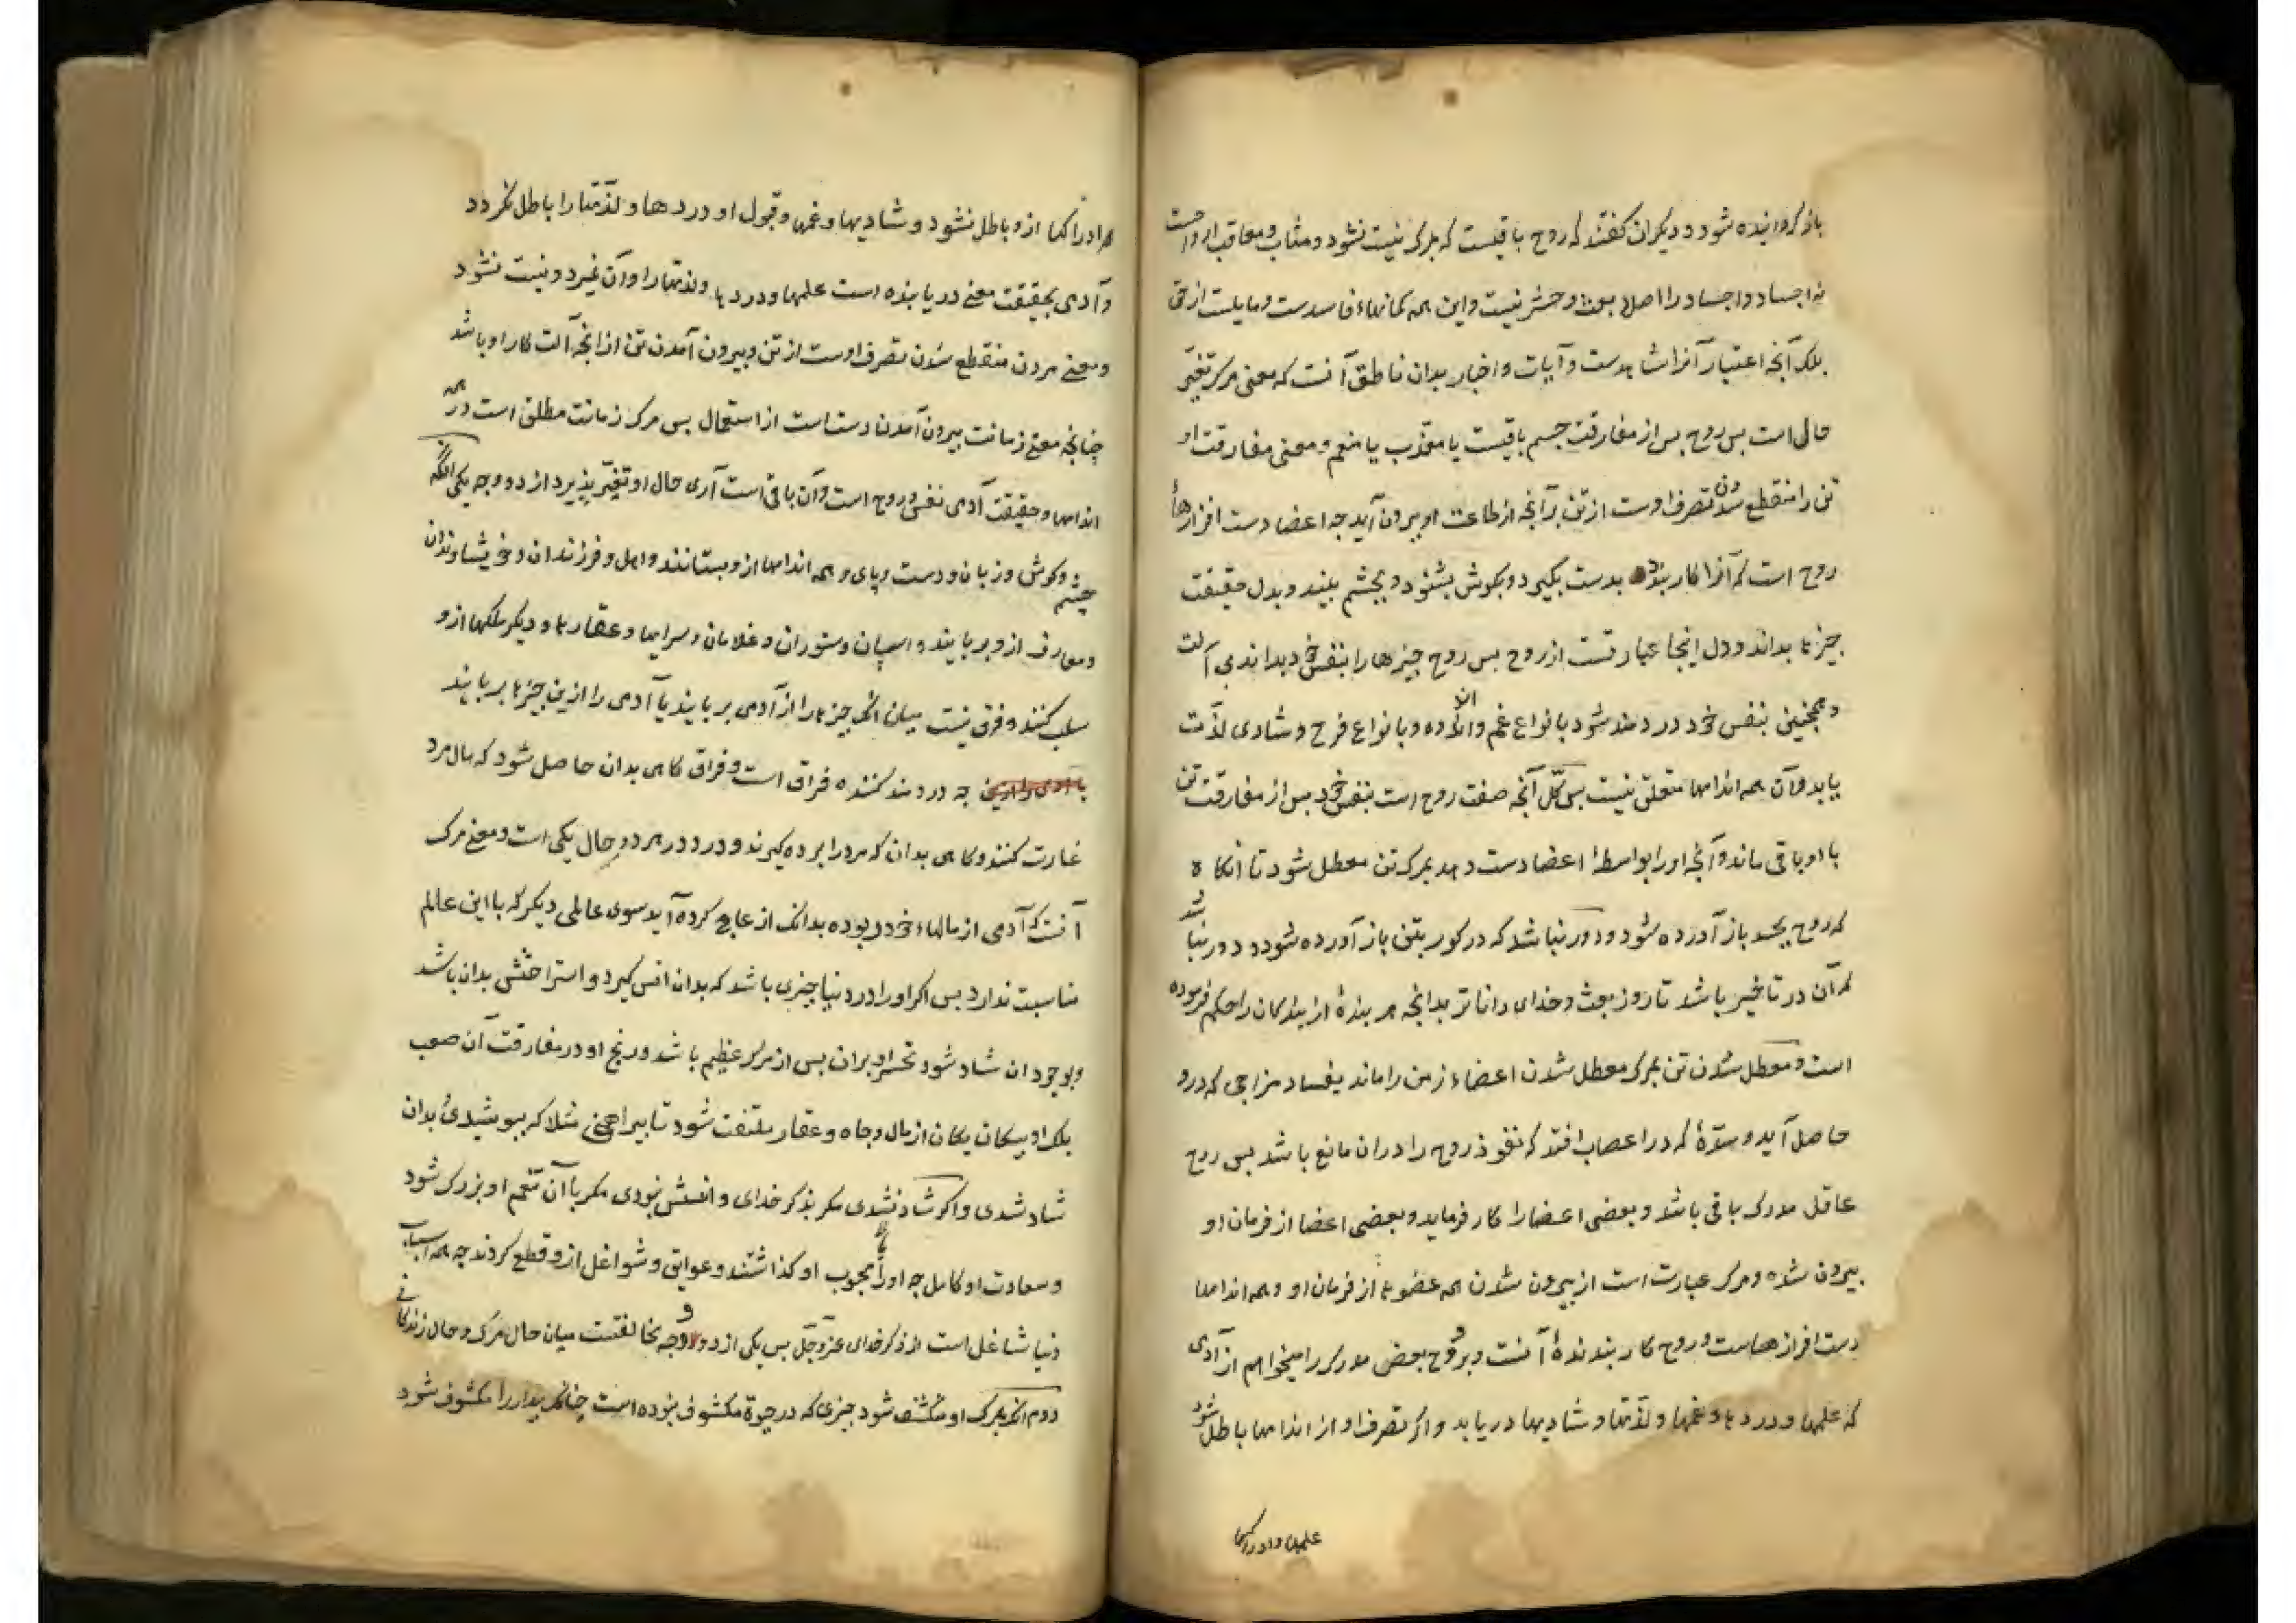 باز گردانیده شود و دیگران گفتند که روح باقیست که بمرگ نیست نشود و مثاب و معاقب ارواحست
نه اجساد و اجساد را اصلا بعث و حشر نیست و این همه گمانهاء فاسدست و مایلست از حق
بلک آنچه اعتبار آنرا شاهدست و آیات و اخبار بدان ناطق آنست که معنی مرگ تغیّر
حال است پس روح پس از مفارقت جسم باقیست یا معذّب یا منعم و معنی مفارقت او
تن را منقطع شدن تصرف اوست از تن برآنچه از طاعت او بیرون آید چه اعضا دست افزارهاء
روح است که آنرا کار بندد بدست بگیرد و بگوش بشنود و بچشم ببیند و بدل حقیقت
چیزها بداند و دل اینجا عبارتست از روح پس روح چیزها را بنفس خود بداند بی آلت
و همچنین بنفس خود دردمند شود بانواع غم و اندوه و بانواع فرح و شادی لذّت
یابد و آن همه اندامها متعلق نیست پس کلّ آنچه صفت روح است بنفس خود پس از مفارقت تن
با او باقی ماند و آنچه او را بواسطۀ اعضا دست دهد بمرگ تن معطل شود تا آنگاه
که روح بجسد باز آورده شود و دور نباشد که در گور بتن باز آورده شود و دور نباشد
که آن در تأخیر باشد تا روز بعث و خدای داناتر بدانچه هر بندۀ از بندگان را حکم فرموده
است و معطل شدن تن بمرگ معطل شدن اعضاء زمن را ماند بفساد مزاجی که درو
حاصل آید و سدّۀ که در اعصاب افتد که نفوذ روح را دران مانع باشد پس روح
عاقل مدرک باقی باشد و بعضی اعضا را کار فرماید و بعضی اعضا از فرمان او
بیرون شده و مرگ عبارت است از بیرون شدن همه عضوها از فرمان او و همه اندامها
دست افزارهاست و روح کار بندندۀ آنست و بروح بعض مدرک را میخواهم از آدمی
که علمها و دردها و غمها و لذّتها و شادیها دریابد و اگر تصرف او از اندامها باطل شود
علمها و ادراکها
هر ادراکها ازو باطل نشود و شادیها و غمها و قبول او دردها و لذّتها را باطل نگردد
و آدمی بحقیقت معنی دریابنده است علمها و دردها و لذتها را و آن نمیرد و نیست نشود
و معنی مردن منقطع شدن تصرف اوست از تن و بیرون آمدن تن ازانچه آلت کار او باشد
چنانچه معنی زمانت بیرون آمدن دست است از استعمال پس مرگ زمانت مطلق است در همه
اندامها و حقیقت آدمی نفس و روح است و آن باقی است آری حال او تغیّر پذیرد از دو وجه یکی آنکه
چشم و گوش و زبان و دست و پای و همه اندامها ازو بستانند و اهل و فرزندان و خویشاوندان
و معارف ازو بربایند و اسپان و ستوران و غلامان و سرایها و عقارها و دیگر ملکها ازو
سلب کنند و فرق نیست میان آنک چیزها را از آدمی بربایند یا آدمی را ازین چیزها بربایند
چه دردمند کننده فراق است و فراق گاهی بدان حاصل شود که مال مرد
غارت کنند و گاهی بدان که مرد را برده گیرند و درد در هر دو حال یکی است و معنی مرگ
آنست که آدمی از مالهاء خود ربوده بدانک ازعاج کرده آید سوی عالمی دیگر که با این عالم
مناسبت ندارد پس اگر او را در دنیا چیزی باشد که بدان انس گیرد و استراحتش بدان باشد
و بوجود ان شاد شود تحسّر او بران پس از مرگ عظیم باشد و رنج او در مفارقت آن صعب
بلک او بیکان یکان از مال و جاه و عقار ملتفت شود تا پیراهنی مثلا که بپوشیدی بدان
شاد شدی و اگر شاد نشدی مگر بذکر خدای و انسش نبودی مگر باآن تنعّم او بزرگ شود
و سعادت او کامل چه او را با محبوب او گذاشتند و عوایق و شواغل ازو قطع کردند چه همه اسباب
دنیا شاغل است از ذکر خدای عزّ و جلّ پس یکی از دو وجه مخالفتست میان حال مرگ و حال زندگانی
دوم آنکه بمرگ او منکشف شود چیزی که در حیوة مکشوف نبوده است چنانکه بیدار را مکشوف شود